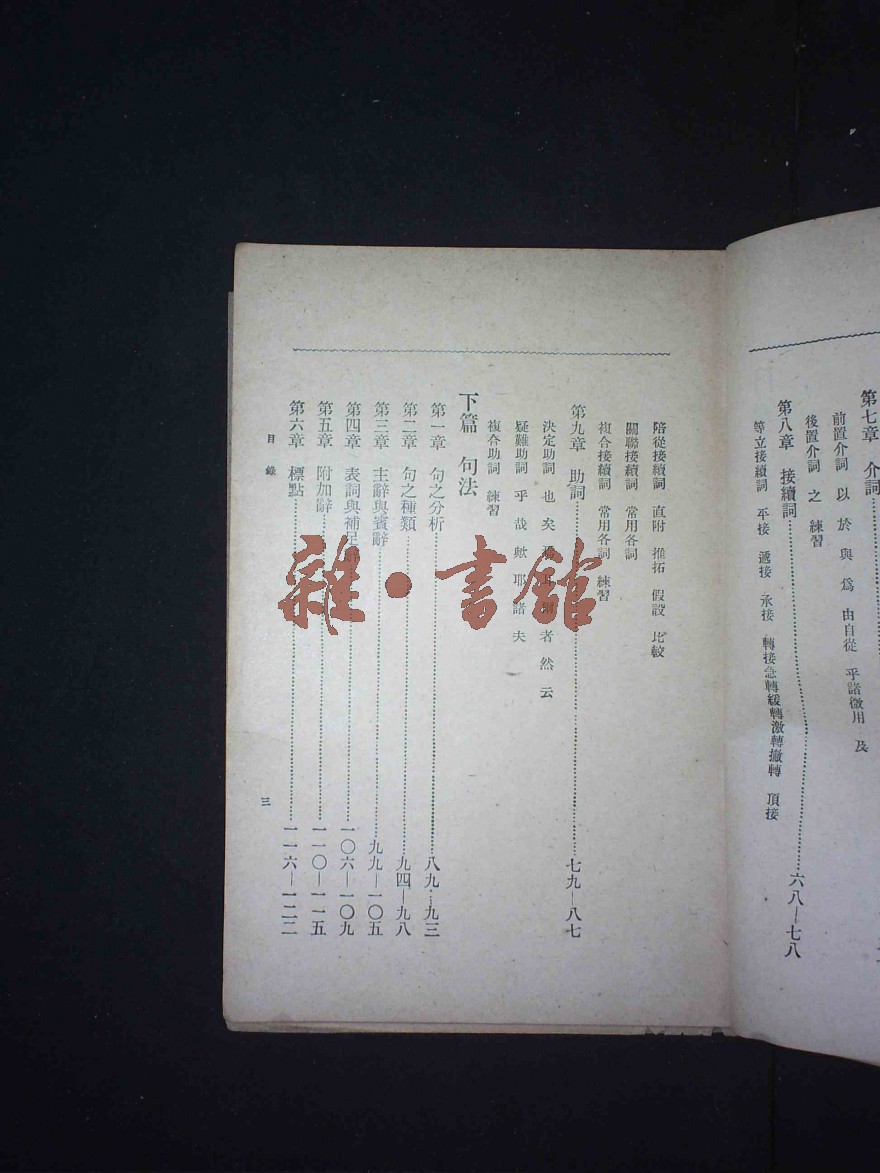 第七章 介詞
前置介詞 以 於 與 爲 由自從 乎諸微用 及
後置介詞 之 練習
第八章 接續詞……六八—七八
等立接續詞 平接 遞接 承接 轉接急轉緩轉激轉撇轉 頂接
陪從接續詞 直附 推拓 假設 比較
關聯接續詞 常用各詞
複合接續詞 常用各詞 練習
第九章 助詞……七九—八七
決定助詞 也 矣 者 然 云
疑難助詞 乎 哉 歟 耶 諸 夫
複合助詞 練習
下篇 句法
第一章 句之分析……八九·九三
第二章 句之種類……九四—九八
第三章 主辭與賓辭……九九—一〇五
第四章 表詞與補足……一〇六—一〇九
第五章 附加辭……一一〇—一一五
第六章 標點……一一六—一二二
目錄
三
雜·書館